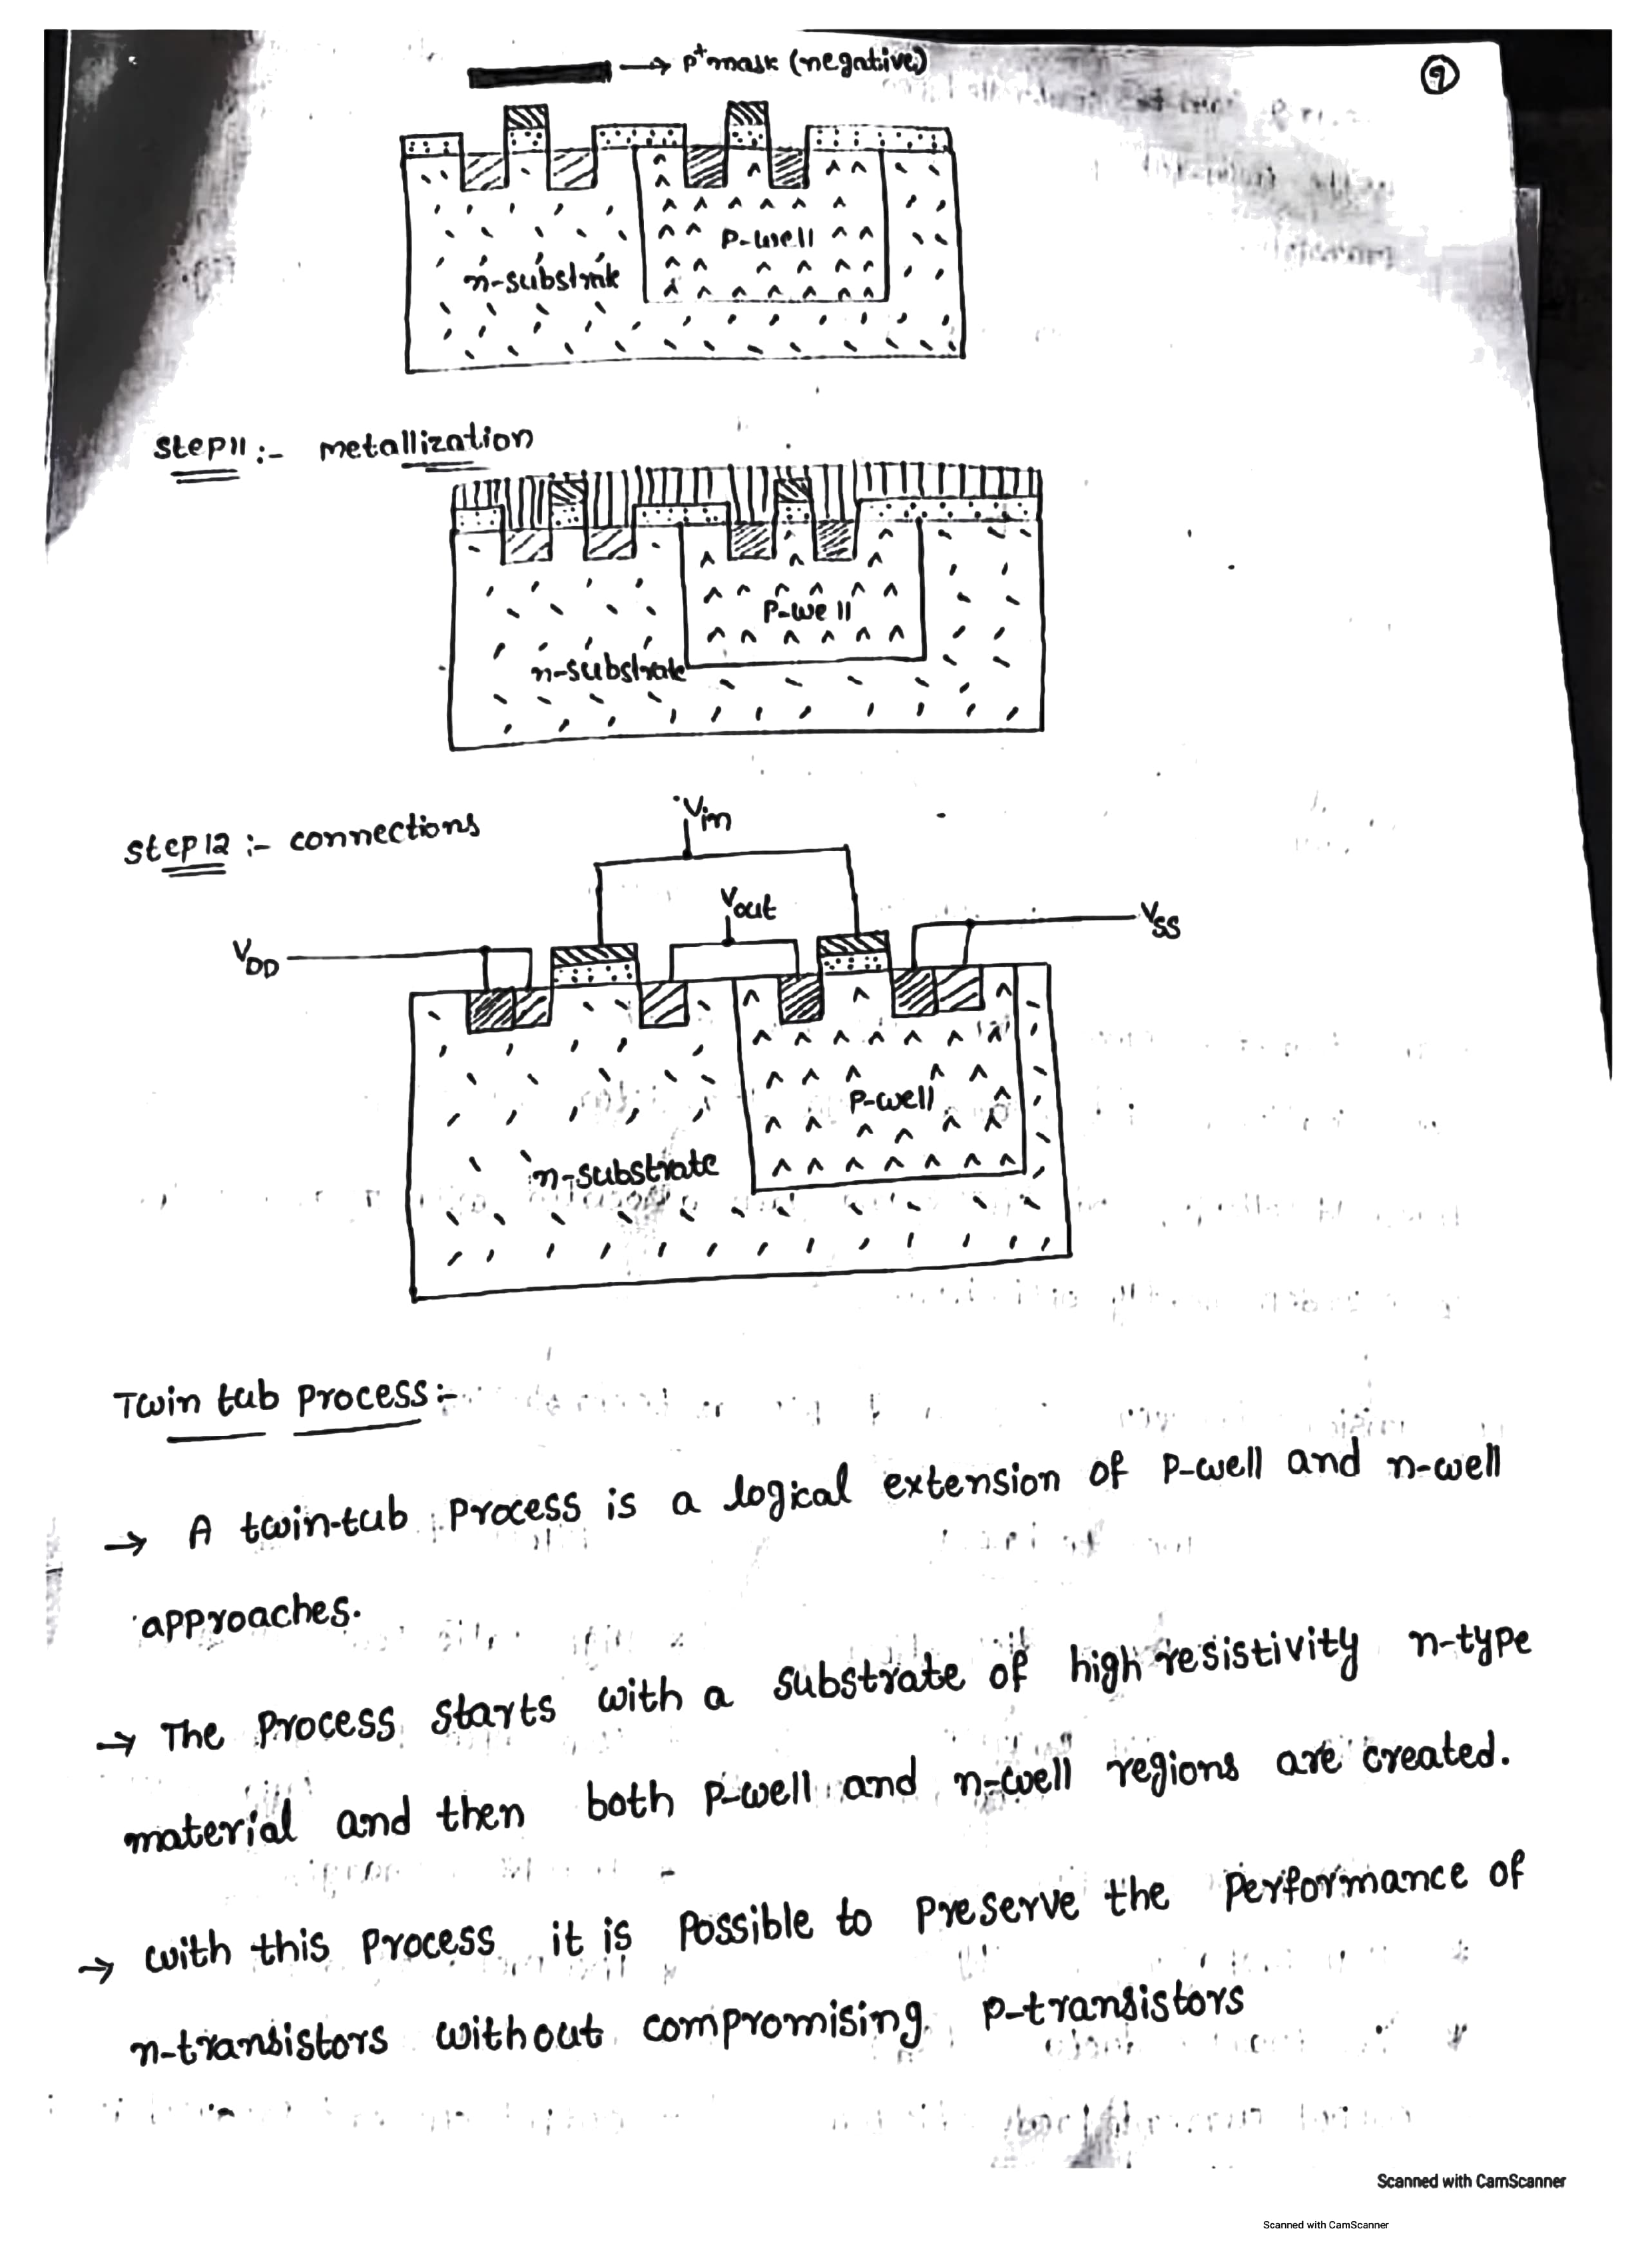 → p⁺mask (negative)
9
P-well
n-substrate
Step11 :- metallization
P-well
n-substrate
Step12 :- connections
Vin
Vout
VDD
VSS
P-well
n-substrate
Twin tub process:-
→ A twin-tub process is a logical extension of P-well and n-well
approaches.
→ The process starts with a substrate of high resistivity n-type
material and then both P-well and n-well regions are created.
→ with this process it is possible to preserve the performance of
n-transistors without compromising p-transistors
Scanned with CamScanner
Scanned with CamScanner